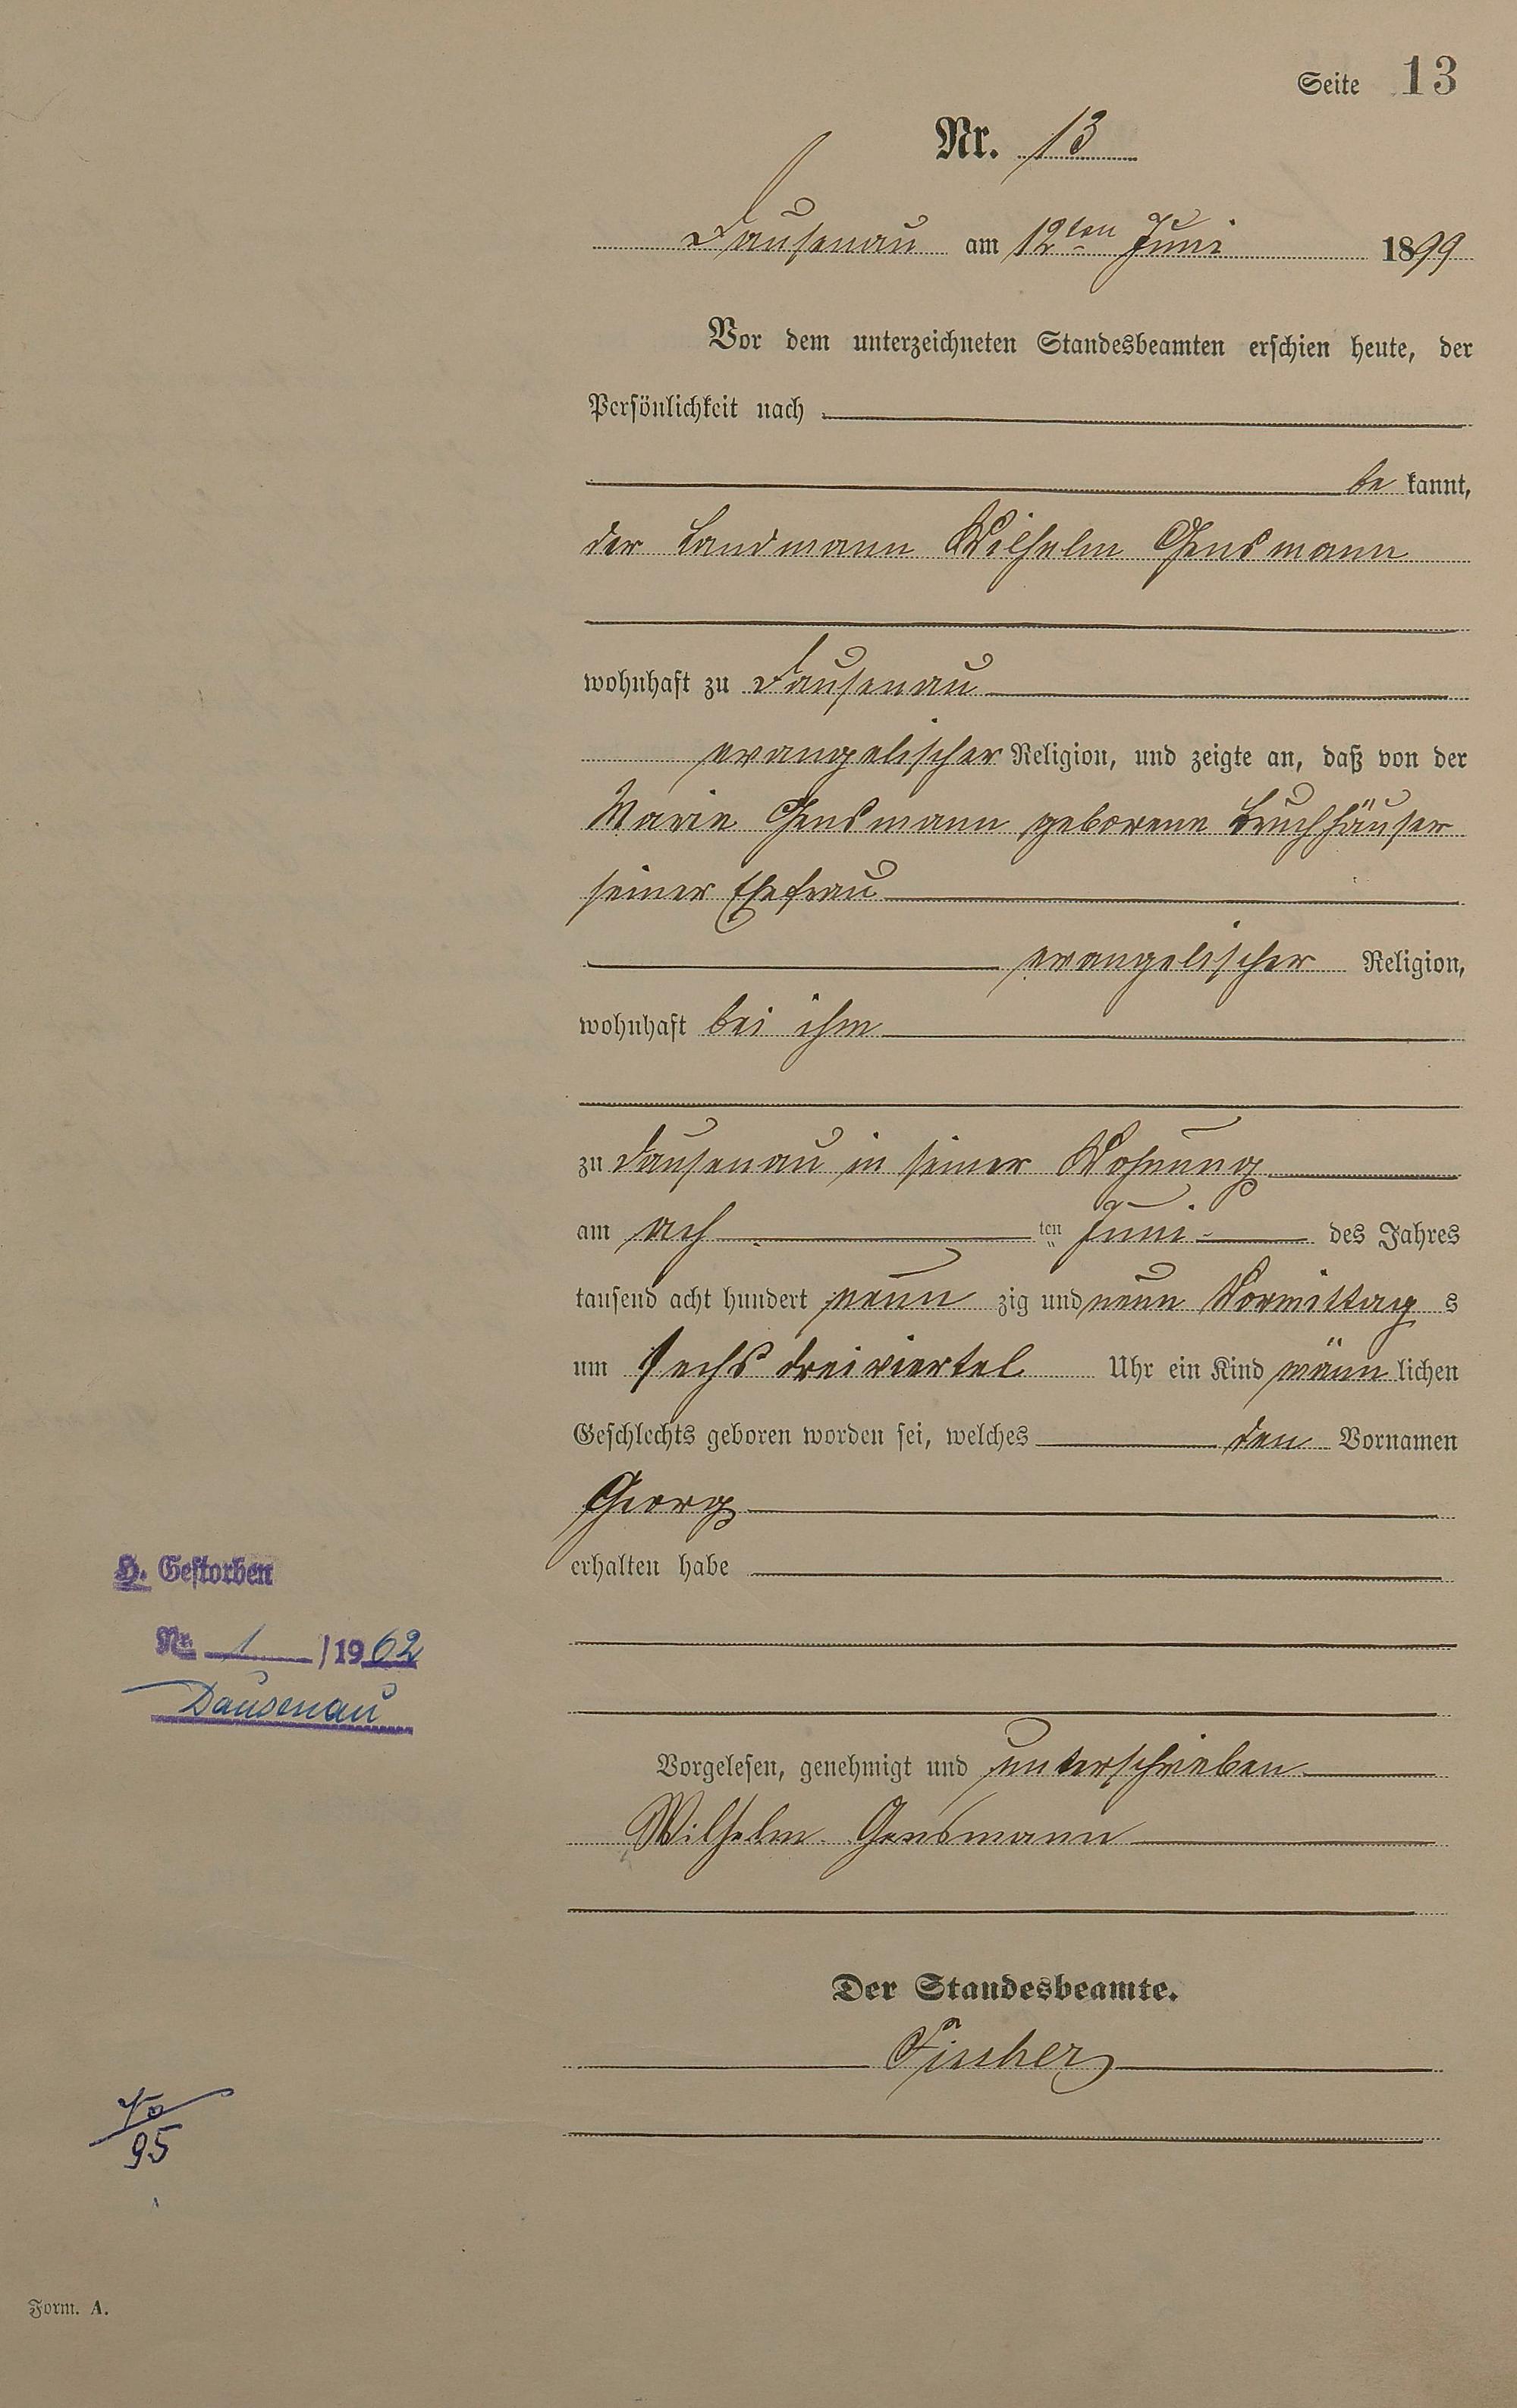 Seite 13
Nr. 13
Dausenau am 12ten Juni 1899
Vor dem unterzeichneten Standesbeamten erschien heute, der
Persönlichkeit nach
be kannt,
der Landmann Wilhelm Gensmann
wohnhaft zu Dausenau
evangelischer Religion, und zeigte an, daß von der
Marie Gensmann geborene Bruchhäuser
seiner Ehefrau
evangelischer Religion,
wohnhaft bei ihm
zu Dausenau in seiner Wohnung
am ach ten Juni des Jahres
tausend acht hundert neun zig und neun Vormittag s
um sechs dreiviertel Uhr ein Kind männ lichen
Geschlechts geboren worden sei, welches den Vornamen
Georg
erhalten habe
H. Gestorben
Nr. 1 /1962
Dausenau
Vorgelesen, genehmigt und unterschrieben
Wilhelm Gensmann
Der Standesbeamte.
Fischer
95
Form. A.